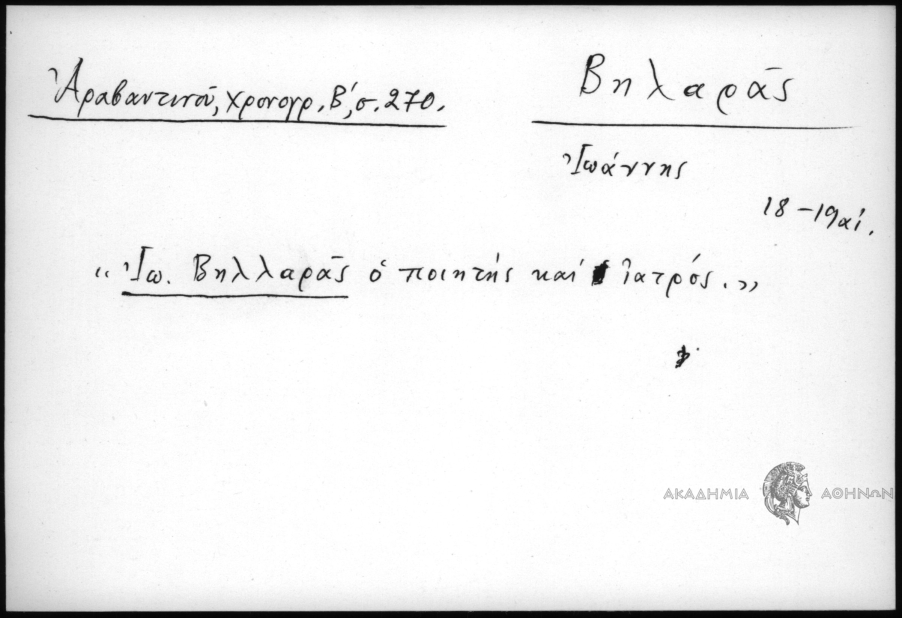 Ἀραβαντινοῦ, Χρονογρ. Β΄, σ. 270.
Βηλαρᾶς
Ἰωάννης
18 – 19 αἰ.
“ Ἰω. Βηλλαρᾶς ὁ ποιητής καί ἰατρός. ”
ΑΚΑΔΗΜΙΑ ΑΘΗΝΩΝ